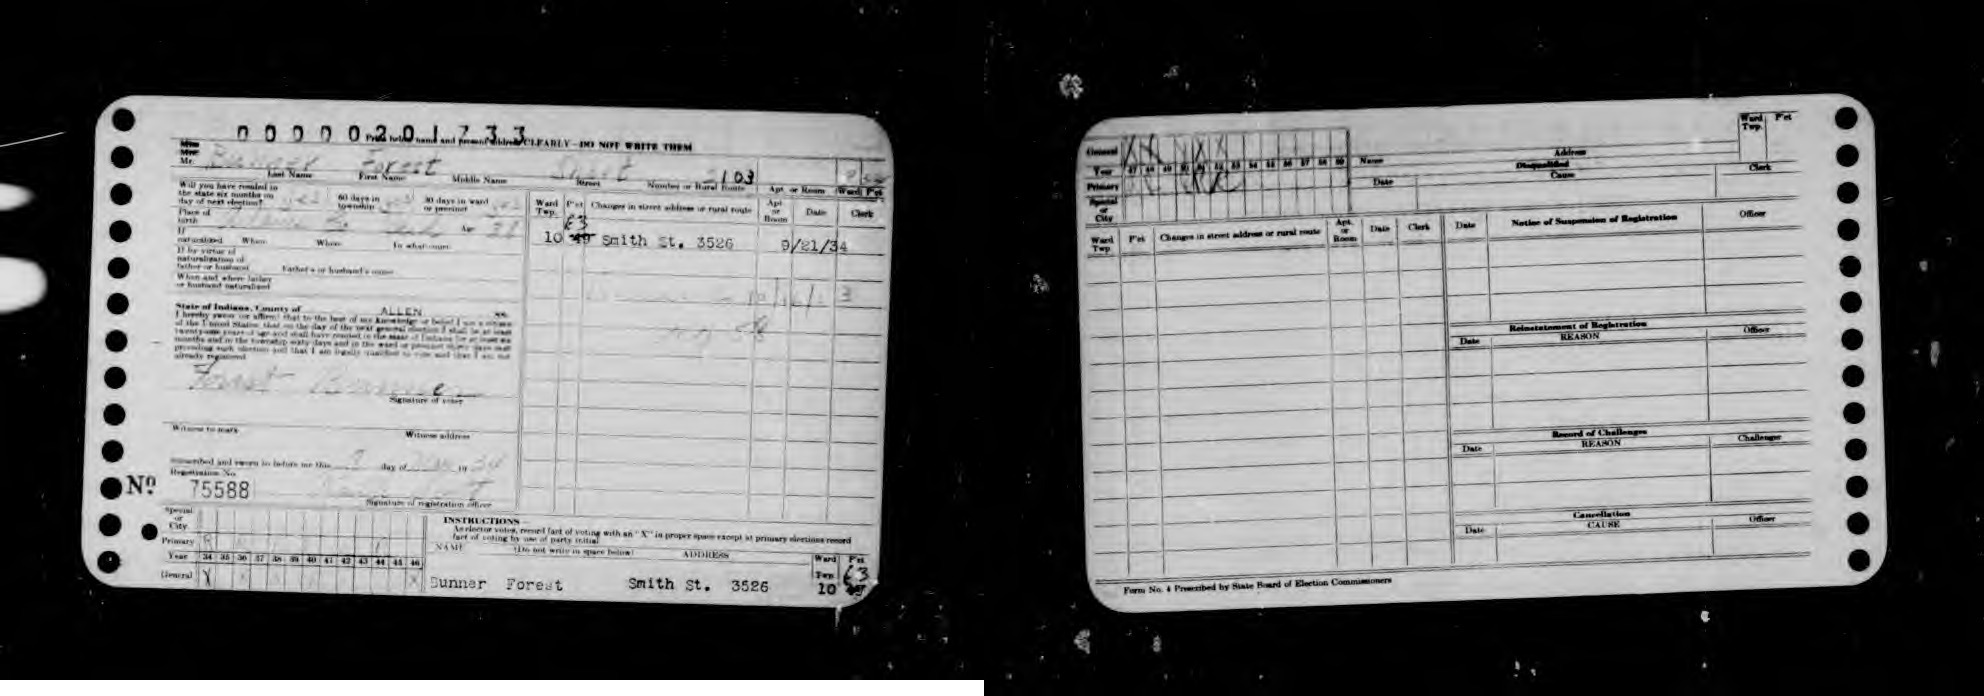 00000201733
Print below name and present address CLEARLY—DO NOT WRITE THEM
Miss
Mrs.
Mr. Bunner Forest 2103
Last Name First Name Middle Name Street Number or Rural Route Apt. or Room Ward P'ct
Will you have resided in
the state six months on
day of next election? yes 60 days in township yes 30 days in ward or precinct yes
Place of
birth Age
If
naturalized When Where In what court
If by virtue of
naturalization of
father or husband Father's or husband's name
When and where father
or husband naturalized
State of Indiana, County of ALLEN ss.
I hereby swear (or affirm) that to the best of my knowledge or belief I am a citizen
of the United States; that on the day of the next general election I shall be at least
twenty-one years of age and shall have resided in the state of Indiana for at least six
months and in the township sixty days and in the ward or precinct thirty days next
preceding such election and that I am legally qualified to vote and that I am not
already registered.
Forest Bunner
Signature of voter
Witness to mark Witness address
Subscribed and sworn to before me this day of 19 34
Registration No.
Nº 75588
Signature of registration officer
Ward Twp. P'ct Changes in street address or rural route Apt. or Room Date Clerk
63
10 49 Smith St. 3526 9/21/34
Special
or
City
Primary R
Year 34 35 36 37 38 39 40 41 42 43 44 45 46
General X X X
INSTRUCTIONS—
As elector votes, record fact of voting with an "X" in proper space except at primary elections record
fact of voting by use of party initial
NAME (Do not write in space below) ADDRESS Ward Twp. P'ct
63
Bunner Forest Smith St. 3526 10
General X X X X
Year 47 48 49 50 51 52 53 54 55 56 57 58 59
Primary
Special
or
City
Name Address Ward Twp. P'ct
Disqualified
Date Cause Clerk
Ward Twp. P'ct Changes in street address or rural route Apt. or Room Date Clerk
Date Notice of Suspension of Registration Officer
Reinstatement of Registration
Date REASON Officer
Record of Challenges
Date REASON Challenger
Cancellation
Date CAUSE Officer
Form No. 4 Prescribed by State Board of Election Commissioners